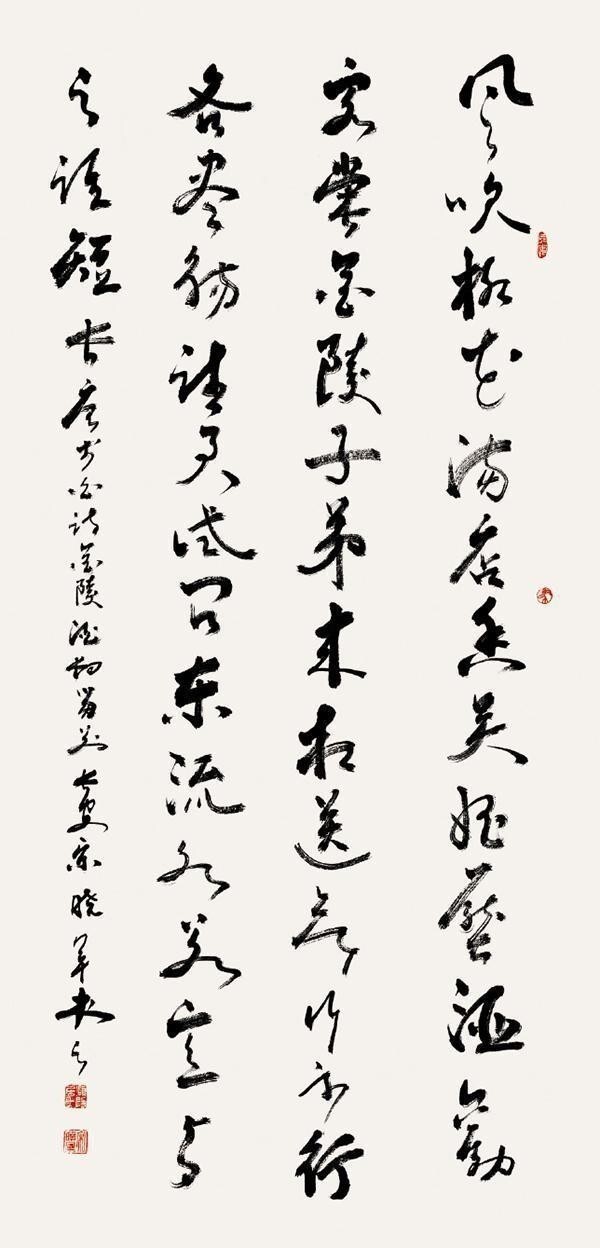 風吹柳花滿店香吳姬壓酒勸
客嘗金陵子弟來相送欲行不行
各盡觴請君試問東流水別意與
之誰短長 唐李白詩金陵酒肆留別